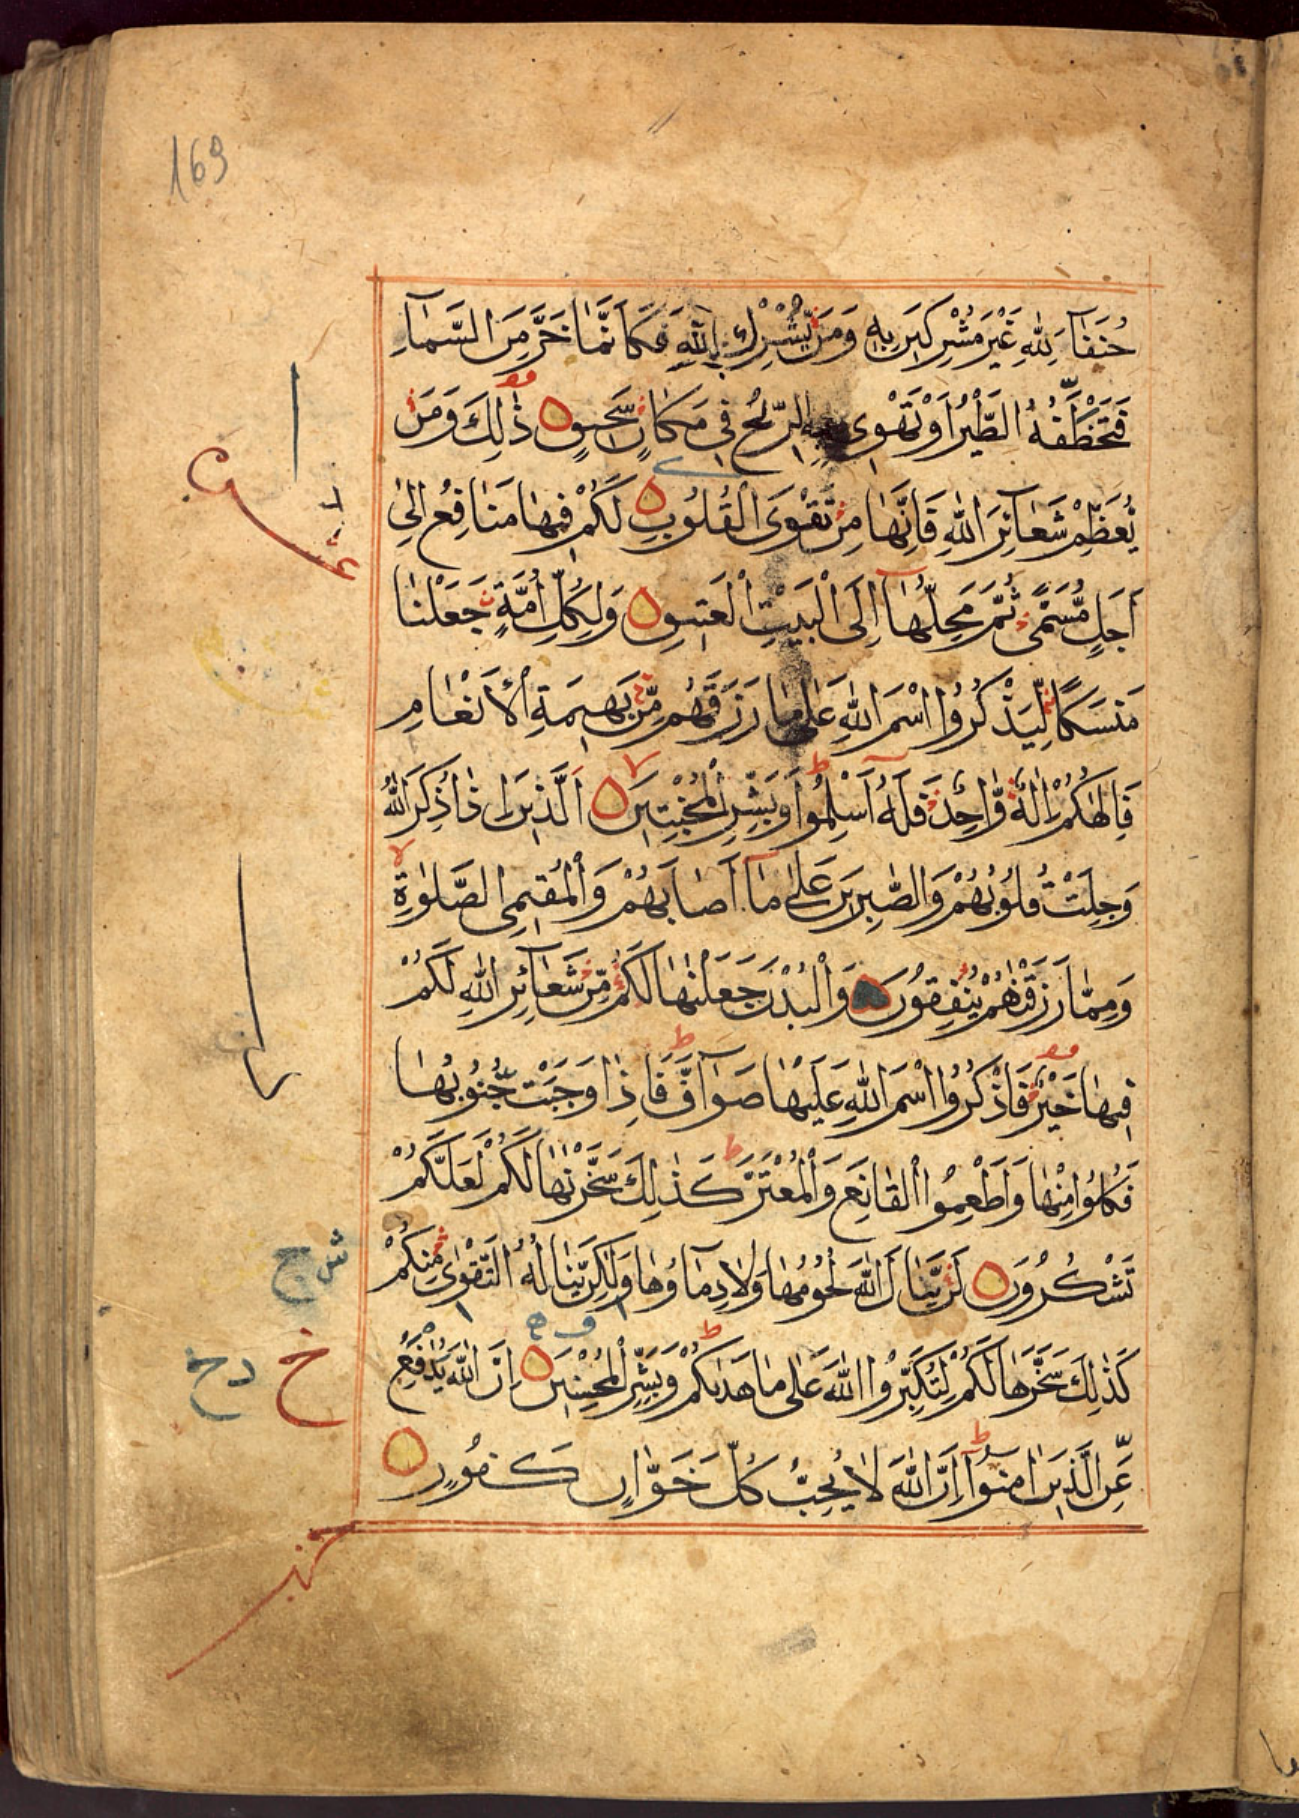 169
حُنَفَآءَ لِلّٰهِ غَيْرَ مُشْرِكِيْنَ بِهٖ وَمَنْ يُّشْرِكْ بِاللّٰهِ فَكَاَنَّمَا خَرَّ مِنَ السَّمَآءِ
فَتَخْطَفُهُ الطَّيْرُ اَوْ تَهْوِيْ بِهِ الرِّيْحُ فِيْ مَكَانٍ سَحِيْقٍ ذٰلِكَ وَمَنْ
يُّعَظِّمْ شَعَآئِرَ اللّٰهِ فَاِنَّهَا مِنْ تَقْوَى الْقُلُوْبِ لَكُمْ فِيْهَا مَنَافِعُ اِلٰى
اَجَلٍ مُّسَمًّى ثُمَّ مَحِلُّهَآ اِلَى الْبَيْتِ الْعَتِيْقِ وَلِكُلِّ اُمَّةٍ جَعَلْنَا
مَنْسَكًا لِّيَذْكُرُوا اسْمَ اللّٰهِ عَلٰى مَا رَزَقَهُمْ مِّنْ بَهِيْمَةِ الْاَنْعَامِ
فَاِلٰهُكُمْ اِلٰهٌ وَّاحِدٌ فَلَهٗٓ اَسْلِمُوْا وَبَشِّرِ الْمُخْبِتِيْنَ اَلَّذِيْنَ اِذَا ذُكِرَ اللّٰهُ
وَجِلَتْ قُلُوْبُهُمْ وَالصّٰبِرِيْنَ عَلٰى مَآ اَصَابَهُمْ وَالْمُقِيْمِى الصَّلٰوةِ
وَمِمَّا رَزَقْنٰهُمْ يُنْفِقُوْنَ وَالْبُدْنَ جَعَلْنٰهَا لَكُمْ مِّنْ شَعَآئِرِ اللّٰهِ لَكُمْ
فِيْهَا خَيْرٌ فَاذْكُرُوا اسْمَ اللّٰهِ عَلَيْهَا صَوَآفَّ فَاِذَا وَجَبَتْ جُنُوْبُهَا
فَكُلُوْا مِنْهَا وَاَطْعِمُوا الْقَانِعَ وَالْمُعْتَرَّ كَذٰلِكَ سَخَّرْنٰهَا لَكُمْ لَعَلَّكُمْ
تَشْكُرُوْنَ لَنْ يَّنَالَ اللّٰهَ لُحُوْمُهَا وَلَا دِمَآؤُهَا وَلٰكِنْ يَّنَالُهُ التَّقْوٰى مِنْكُمْ
كَذٰلِكَ سَخَّرَهَا لَكُمْ لِتُكَبِّرُوا اللّٰهَ عَلٰى مَا هَدٰىكُمْ وَبَشِّرِ الْمُحْسِنِيْنَ اِنَّ اللّٰهَ يُدٰفِعُ
عَنِ الَّذِيْنَ اٰمَنُوْٓا اِنَّ اللّٰهَ لَا يُحِبُّ كُلَّ خَوَّانٍ كَفُوْرٍ